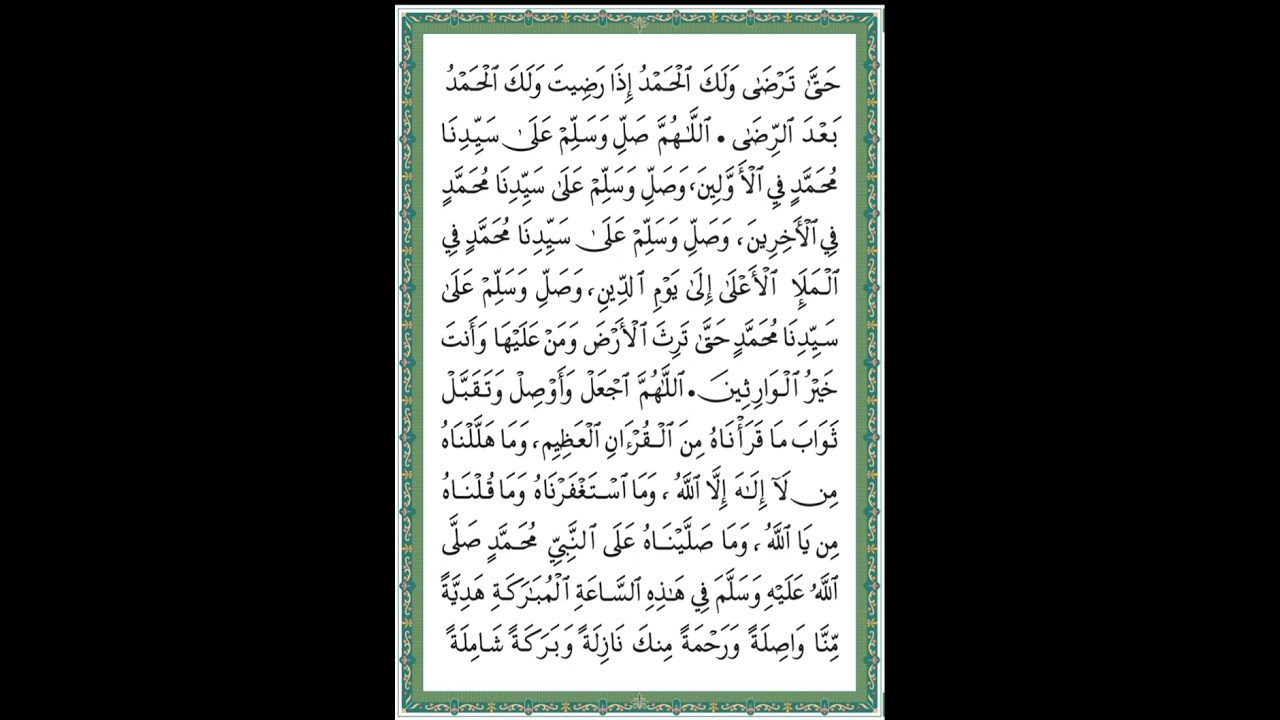 حَتَّىٰ تَرْضَىٰ وَلَكَ ٱلْحَمْدُ إِذَا رَضِيتَ وَلَكَ ٱلْحَمْدُ
بَعْدَ ٱلرِّضَىٰ . ٱللَّـٰهُمَّ صَلِّ وَسَلِّمْ عَلَىٰ سَيِّدِنَا
مُحَمَّدٍ فِي ٱلْأَوَّلِينَ، وَصَلِّ وَسَلِّمْ عَلَىٰ سَيِّدِنَا مُحَمَّدٍ
فِي ٱلْأَخِرِينَ، وَصَلِّ وَسَلِّمْ عَلَىٰ سَيِّدِنَا مُحَمَّدٍ فِي
ٱلْمَلَإِ ٱلْأَعْلَىٰ إِلَىٰ يَوْمِ ٱلدِّينِ، وَصَلِّ وَسَلِّمْ عَلَىٰ
سَيِّدِنَا مُحَمَّدٍ حَتَّىٰ تَرِثَ ٱلْأَرْضَ وَمَنْ عَلَيْهَا وَأَنتَ
خَيْرُ ٱلْوَارِثِينَ. ٱللَّـٰهُمَّ ٱجْعَلْ وَأَوْصِلْ وَتَقَبَّلْ
ثَوَابَ مَا قَرَأْنَاهُ مِنَ ٱلْقُرْءَانِ ٱلْعَظِيمِ، وَمَا هَلَّلْنَاهُ
مِن لَآ إِلَـٰهَ إِلَّا ٱللَّهُ، وَمَا ٱسْتَغْفَرْنَاهُ وَمَا قُلْنَاهُ
مِن يَا ٱللَّهُ، وَمَا صَلَّيْنَاهُ عَلَى ٱلنَّبِيِّ مُحَمَّدٍ صَلَّى
ٱللَّهُ عَلَيْهِ وَسَلَّمَ فِي هَـٰذِهِ ٱلسَّاعَةِ ٱلْمُبَارَكَةِ هَدِيَّةً
مِّنَّا وَاصِلَةً وَرَحْمَةً مِنكَ نَازِلَةً وَبَرَكَةً شَامِلَةً